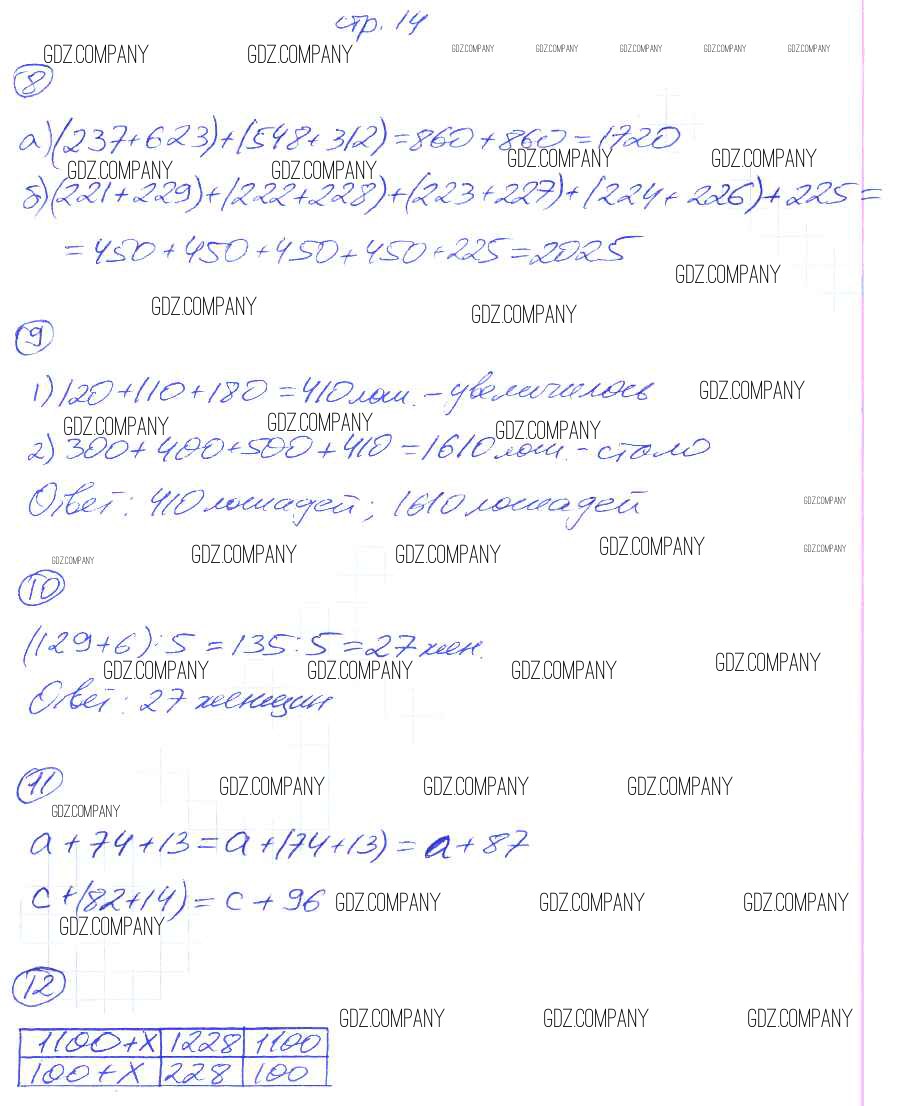 стр. 14
GDZ.COMPANY GDZ.COMPANY GDZ.COMPANY GDZ.COMPANY GDZ.COMPANY GDZ.COMPANY GDZ.COMPANY
8
а) (237+623)+(548+312)=860+860=1720
GDZ.COMPANY GDZ.COMPANY GDZ.COMPANY GDZ.COMPANY
б) (221+229)+(222+228)+(223+227)+(224+226)+225=
=450+450+450+450+225=2025
GDZ.COMPANY
GDZ.COMPANY GDZ.COMPANY
9
1) 120+110+180=410 лош. - увеличилось GDZ.COMPANY
GDZ.COMPANY GDZ.COMPANY GDZ.COMPANY
2) 300+400+500+410=1610 лош. - стало
Ответ: 410 лошадей; 1610 лошадей GDZ.COMPANY
GDZ.COMPANY GDZ.COMPANY GDZ.COMPANY GDZ.COMPANY GDZ.COMPANY
10
(129+6):5=135:5=27 жен.
GDZ.COMPANY GDZ.COMPANY GDZ.COMPANY GDZ.COMPANY
Ответ: 27 женщин
11
GDZ.COMPANY GDZ.COMPANY GDZ.COMPANY
GDZ.COMPANY
a+74+13=a+(74+13)=a+87
c+(82+14)=c+96 GDZ.COMPANY GDZ.COMPANY GDZ.COMPANY
GDZ.COMPANY
12
GDZ.COMPANY GDZ.COMPANY GDZ.COMPANY
1100+x 1228 1100
100+x 228 100